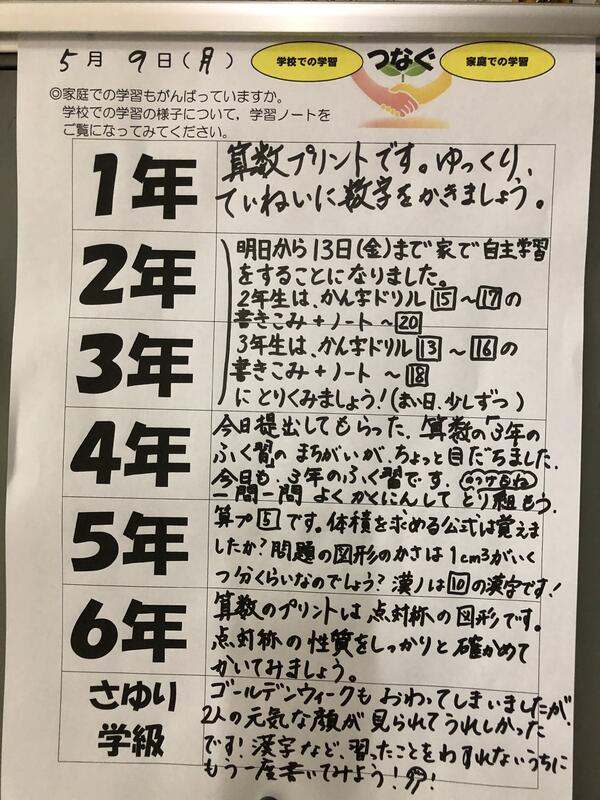 5月 9日(月)
学校での学習
つなぐ
家庭での学習
◎家庭での学習もがんばっていますか。
学校での学習の様子について、学習ノートを
ご覧になってみてください。
1年
算数プリントです。ゆっくり、
ていねいに数字をかきましょう。
2年
明日から13日(金)まで家で自主学習
をすることになりました。
2年生は、かん字ドリル15~17の
書きこみ+ノート~20
3年
3年生は、かん字ドリル13~16の
書きこみ+ノート~18
にとりくみましょう!(まい日、少しずつ)
4年
今日提出してもらった、算数の「3年の
ふく習」のまちがいが、ちょっと目だちました。
今日も、3年のふく習です。
一問一問よくかくにんしてとり組もう。
5年
算プ5です。体積を求める公式は覚えま
したか?問題の図形のかさは1cm3がいく
つ分くらいなのでしょう?漢ノは10の漢字です!
6年
算数のプリントは点対称の図形です。
点対称の性質をしっかりと確かめて
かいてみましょう。
さゆり
学級
ゴールデンウィークもおわってしまいましたが、
2人の元気な顔が見られてうれしかった
です!漢字など、習ったことをわすれないうちに
もう一度書いてみよう!